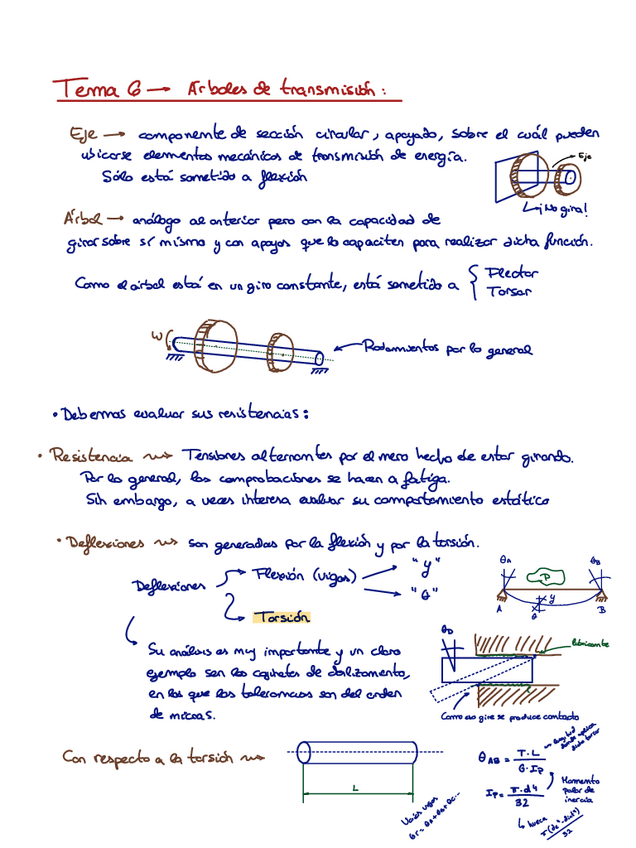 Tema 6 → Árboles de transmisión:
Eje → componente de sección circular, apoyado, sobre el cuál pueden
ubicarse elementos mecánicos de transmisión de energía.
Sólo está sometido a flexión
Eje
¡No gira!
Árbol → análogo al anterior pero con la capacidad de
girar sobre sí mismo y con apoyos que lo capaciten para realizar dicha función.
Como el árbol está en un giro constante, está sometido a { Flector
Torsor
W
Rodamientos por lo general
• Debemos evaluar sus resistencias:
• Resistencia ⇝ Tensiones alternantes por el mero hecho de estar girando.
Por lo general, las comprobaciones se hacen a fatiga.
Sin embargo, a veces interesa evaluar su comportamiento estático
• Deflexiones ⇝ son generadas por la flexión y por la torsión.
Deflexiones → Flexión (vigas) → "y"
"θ"
Torsión
θA θB
P
A y B
θ
Su análisis es muy importante y un claro
ejemplo son los cojinetes de deslizamiento,
en los que las tolerancias son del orden
de micras.
θD
lubricante
Como no gire se produce contacto
Con respecto a la torsión ⇝
L
θAB = T·L / G·Ip
Ip = π·d⁴ / 32
Momento
polar de
inercia
↳ hueca
32